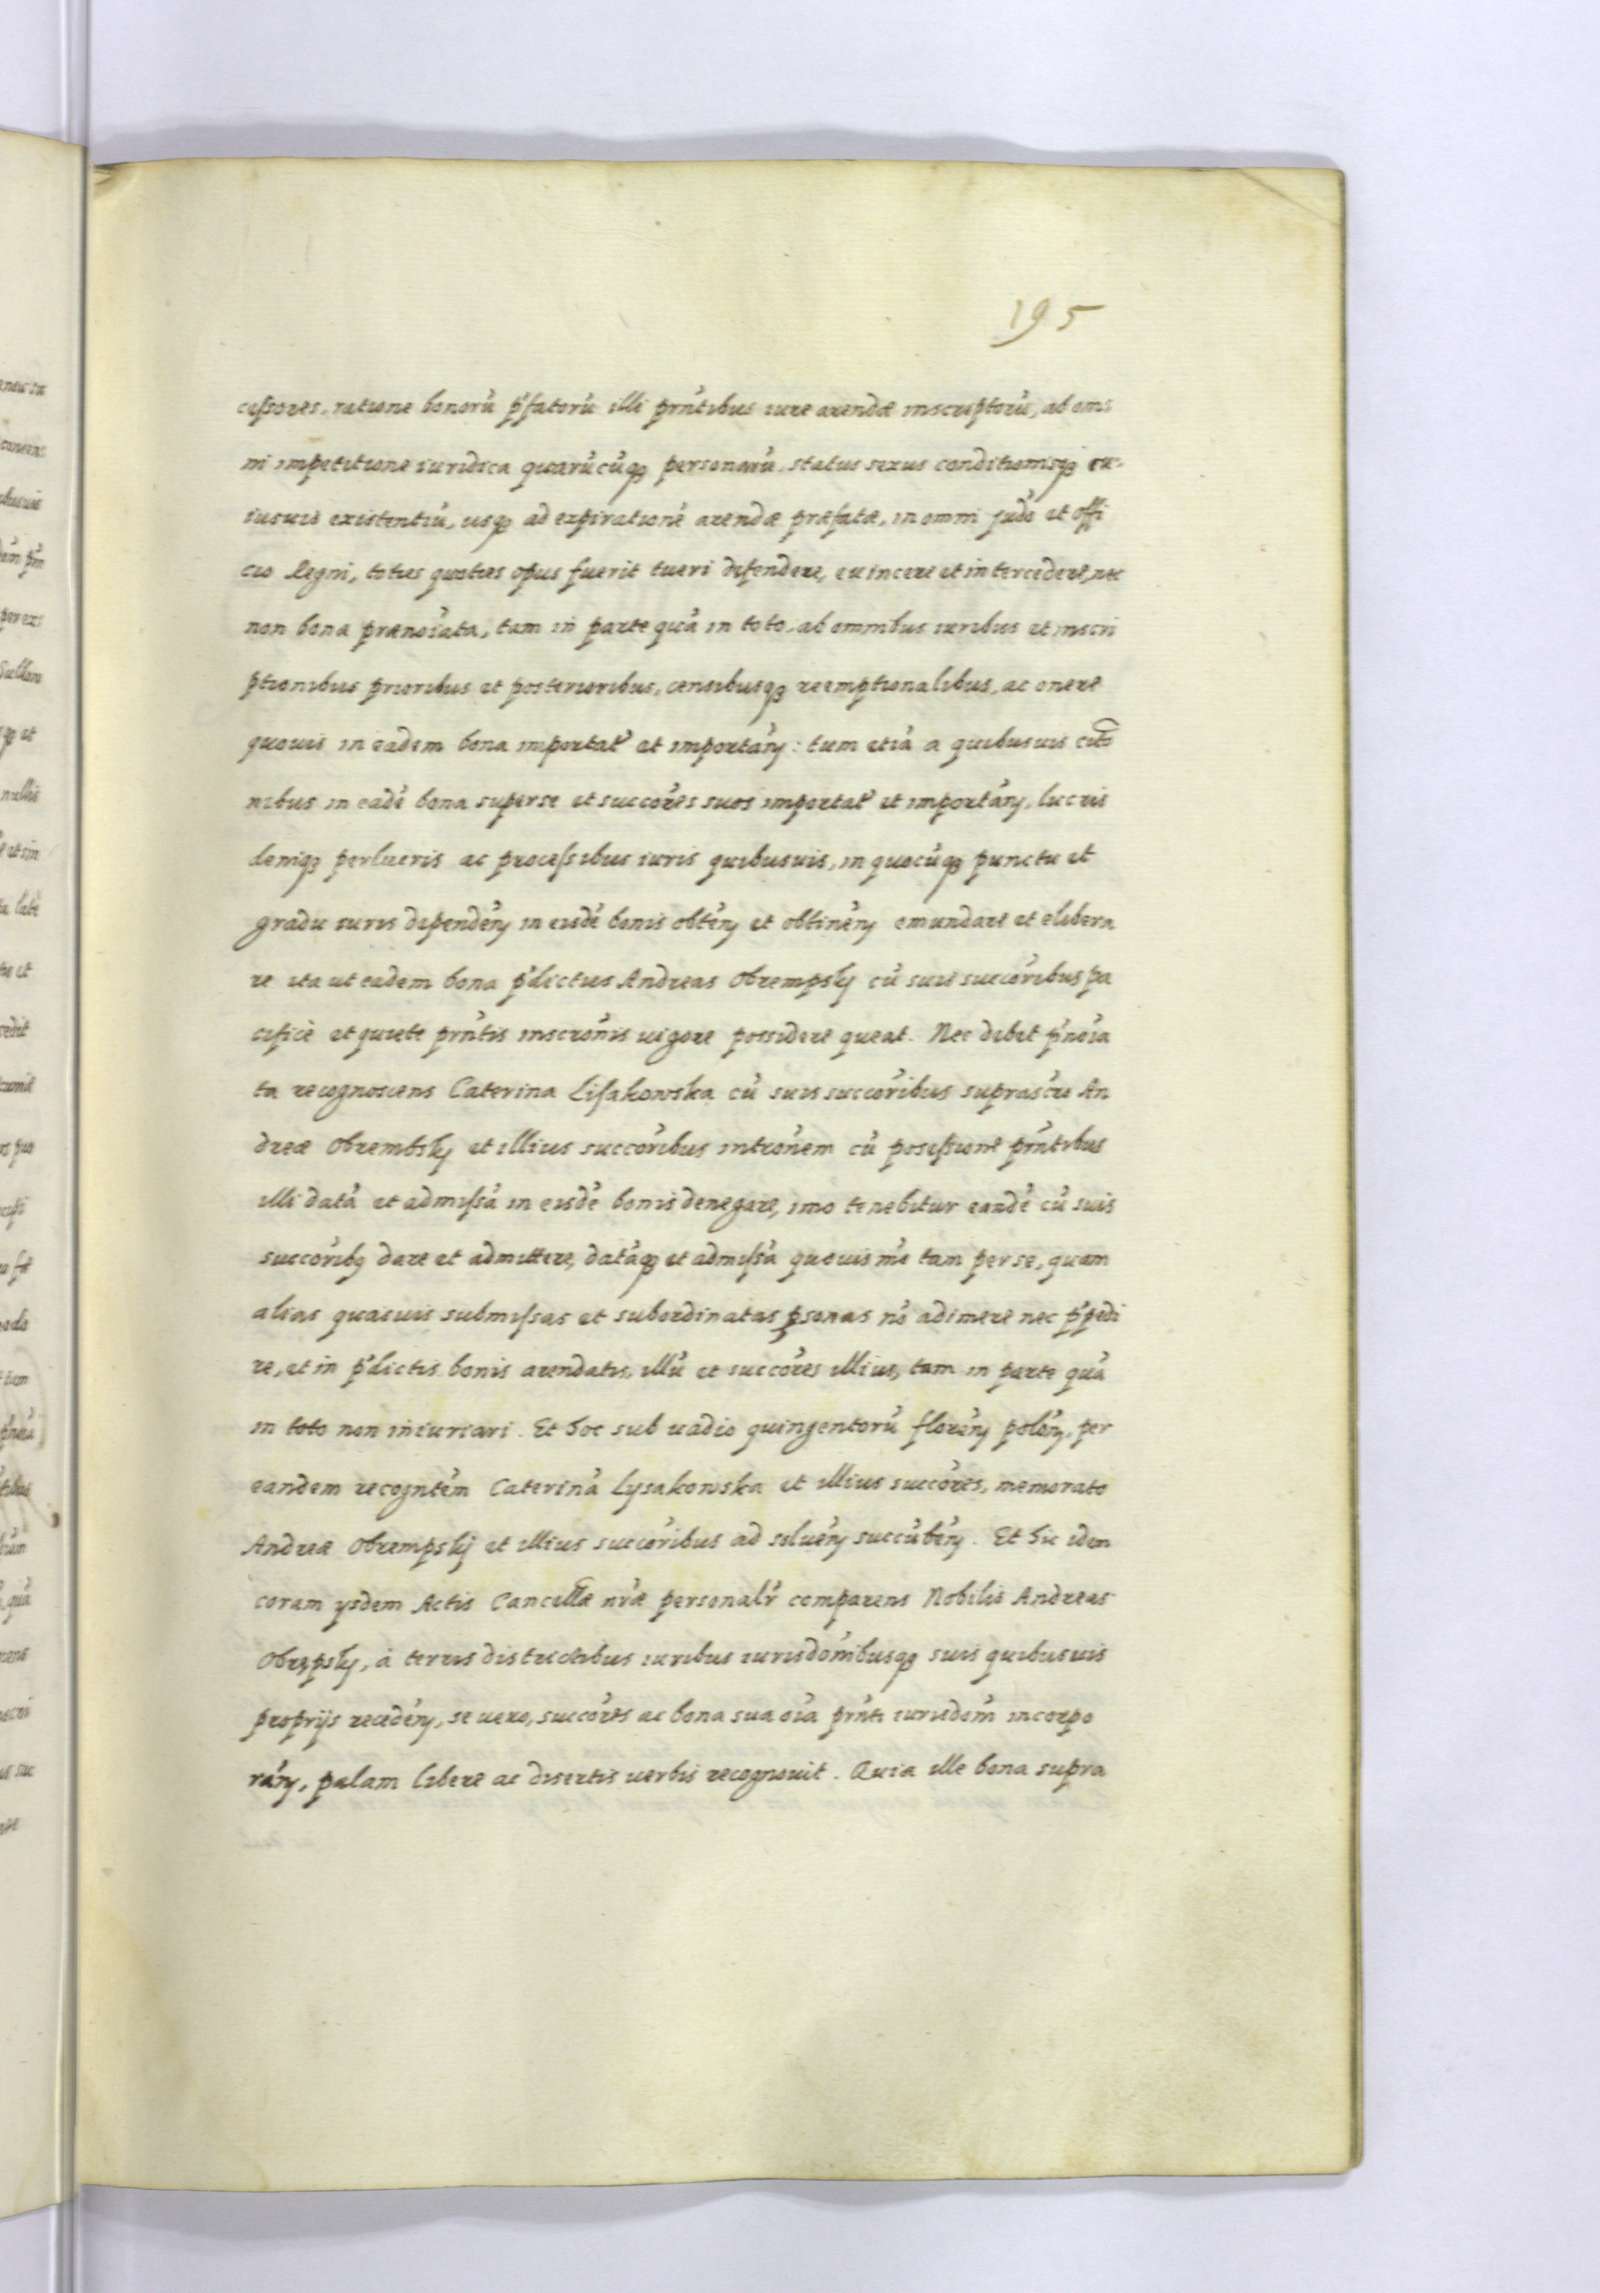 195
cessores, ratione bonorũ p̃fatorũ illi prñtibus iure arendæ inscriptorũ, ab om
ni impetitione iuridica quarũcũq; personarũ, status sexus conditionisq; cu
iusuis existentiũ, usq; ad expirationẽ arendæ præfatæ, in omni judõ et offi
cio Regni, toties quoties opus fuerit tueri defendere, euincere et intercedere, nec
non bona prænoĩata, tam in parte quã in toto, ab omnibus iuribus et inscri
ptionibus prioribus et posterioribus, censibusq; reemptionalibus, ac onere
quouis in eadem bona importat̃ et importãñ: tum etiã a quibusuis
nibus in eadẽ bona super se et succõres suos importat̃ et importãñ, lucris
deniq; perlucris ac processibus iuris quibusuis, in quocũq; punctu et
gradu iuris dependẽñ in eisdẽ bonis obtẽñ et obtinẽñ emundare et elibera
re ita ut eadem bona p̃dictus Andreas Obrempskj cũ suis succõribus pa
cificè et quiete prñtis inscrõnis uigore possidere queat. Nec debet p̃noĩa
ta recognoscens Caterina Lisakowska cũ suis succõribus suprascro An
dreæ Obrembskj et illius succõribus intrõnem cũ possessione prñtibus
illi datã et admissã in eisdẽ bonis denegare, imo tenebitur eandẽ cũ suis
succõribq dare et admittere, datãq; et admissã quouis mõ tam per se, quam
alias quasuis submissas et subordinatas psonas nõ adimere nec p̃pedi
re, et in p̃dictis bonis arendatis, illũ et succõres illius, tam in parte quã
in toto non iniuriari. Et hoc sub uadio quingentorũ florẽñ polõñ, per
eandem recognt̃em Caterinã Lysakowska et illius succõres, memorato
Andreæ Obrempskj et illius succõribus ad soluẽñ succũbẽñ. Et hic idem
coram ysdem Actis Cancellæ nr̃æ personalr̃ comparens Nobilis Andreas
Obrepskj, à terris districtibus iuribus iurisdõnibusq; suis quibusuis
proprijs recedẽñ, se uero, succõres ac bona sua oĩa prñti iurisdõni incorpo
rãñ, palam libere ac disertis uerbis recognouit. Quia ille bona supra